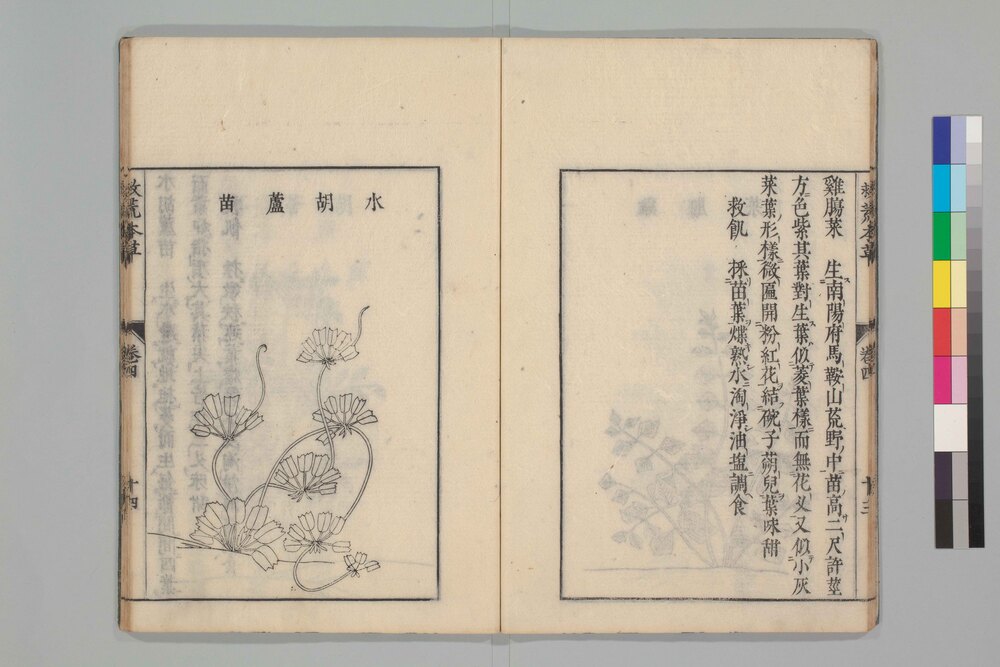 雞腸菜　生南陽府馬鞍山荒野中苗高二尺許莖
方色紫其葉對生葉似菱葉樣而無花叉又似小灰
菜葉形樣微匾開粉紅花結碗子蒴兒葉味甜
救飢　採苗葉煠熟水淘淨油塩調食
救荒本草　卷四　十三
水胡蘆苗
救荒本草　卷四　十四